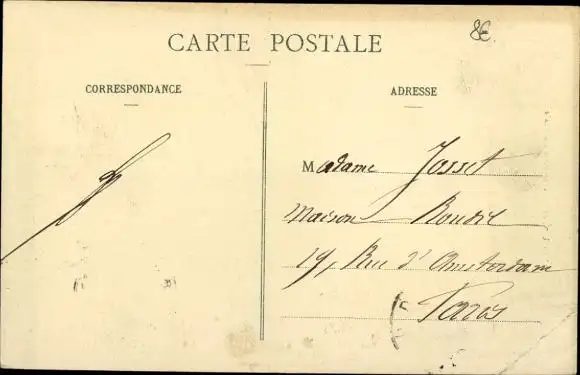 8€
CARTE POSTALE
CORRESPONDANCE
ADRESSE
Madame Josset
Maison Roudié
19, Rue d'Amsterdam
Paris